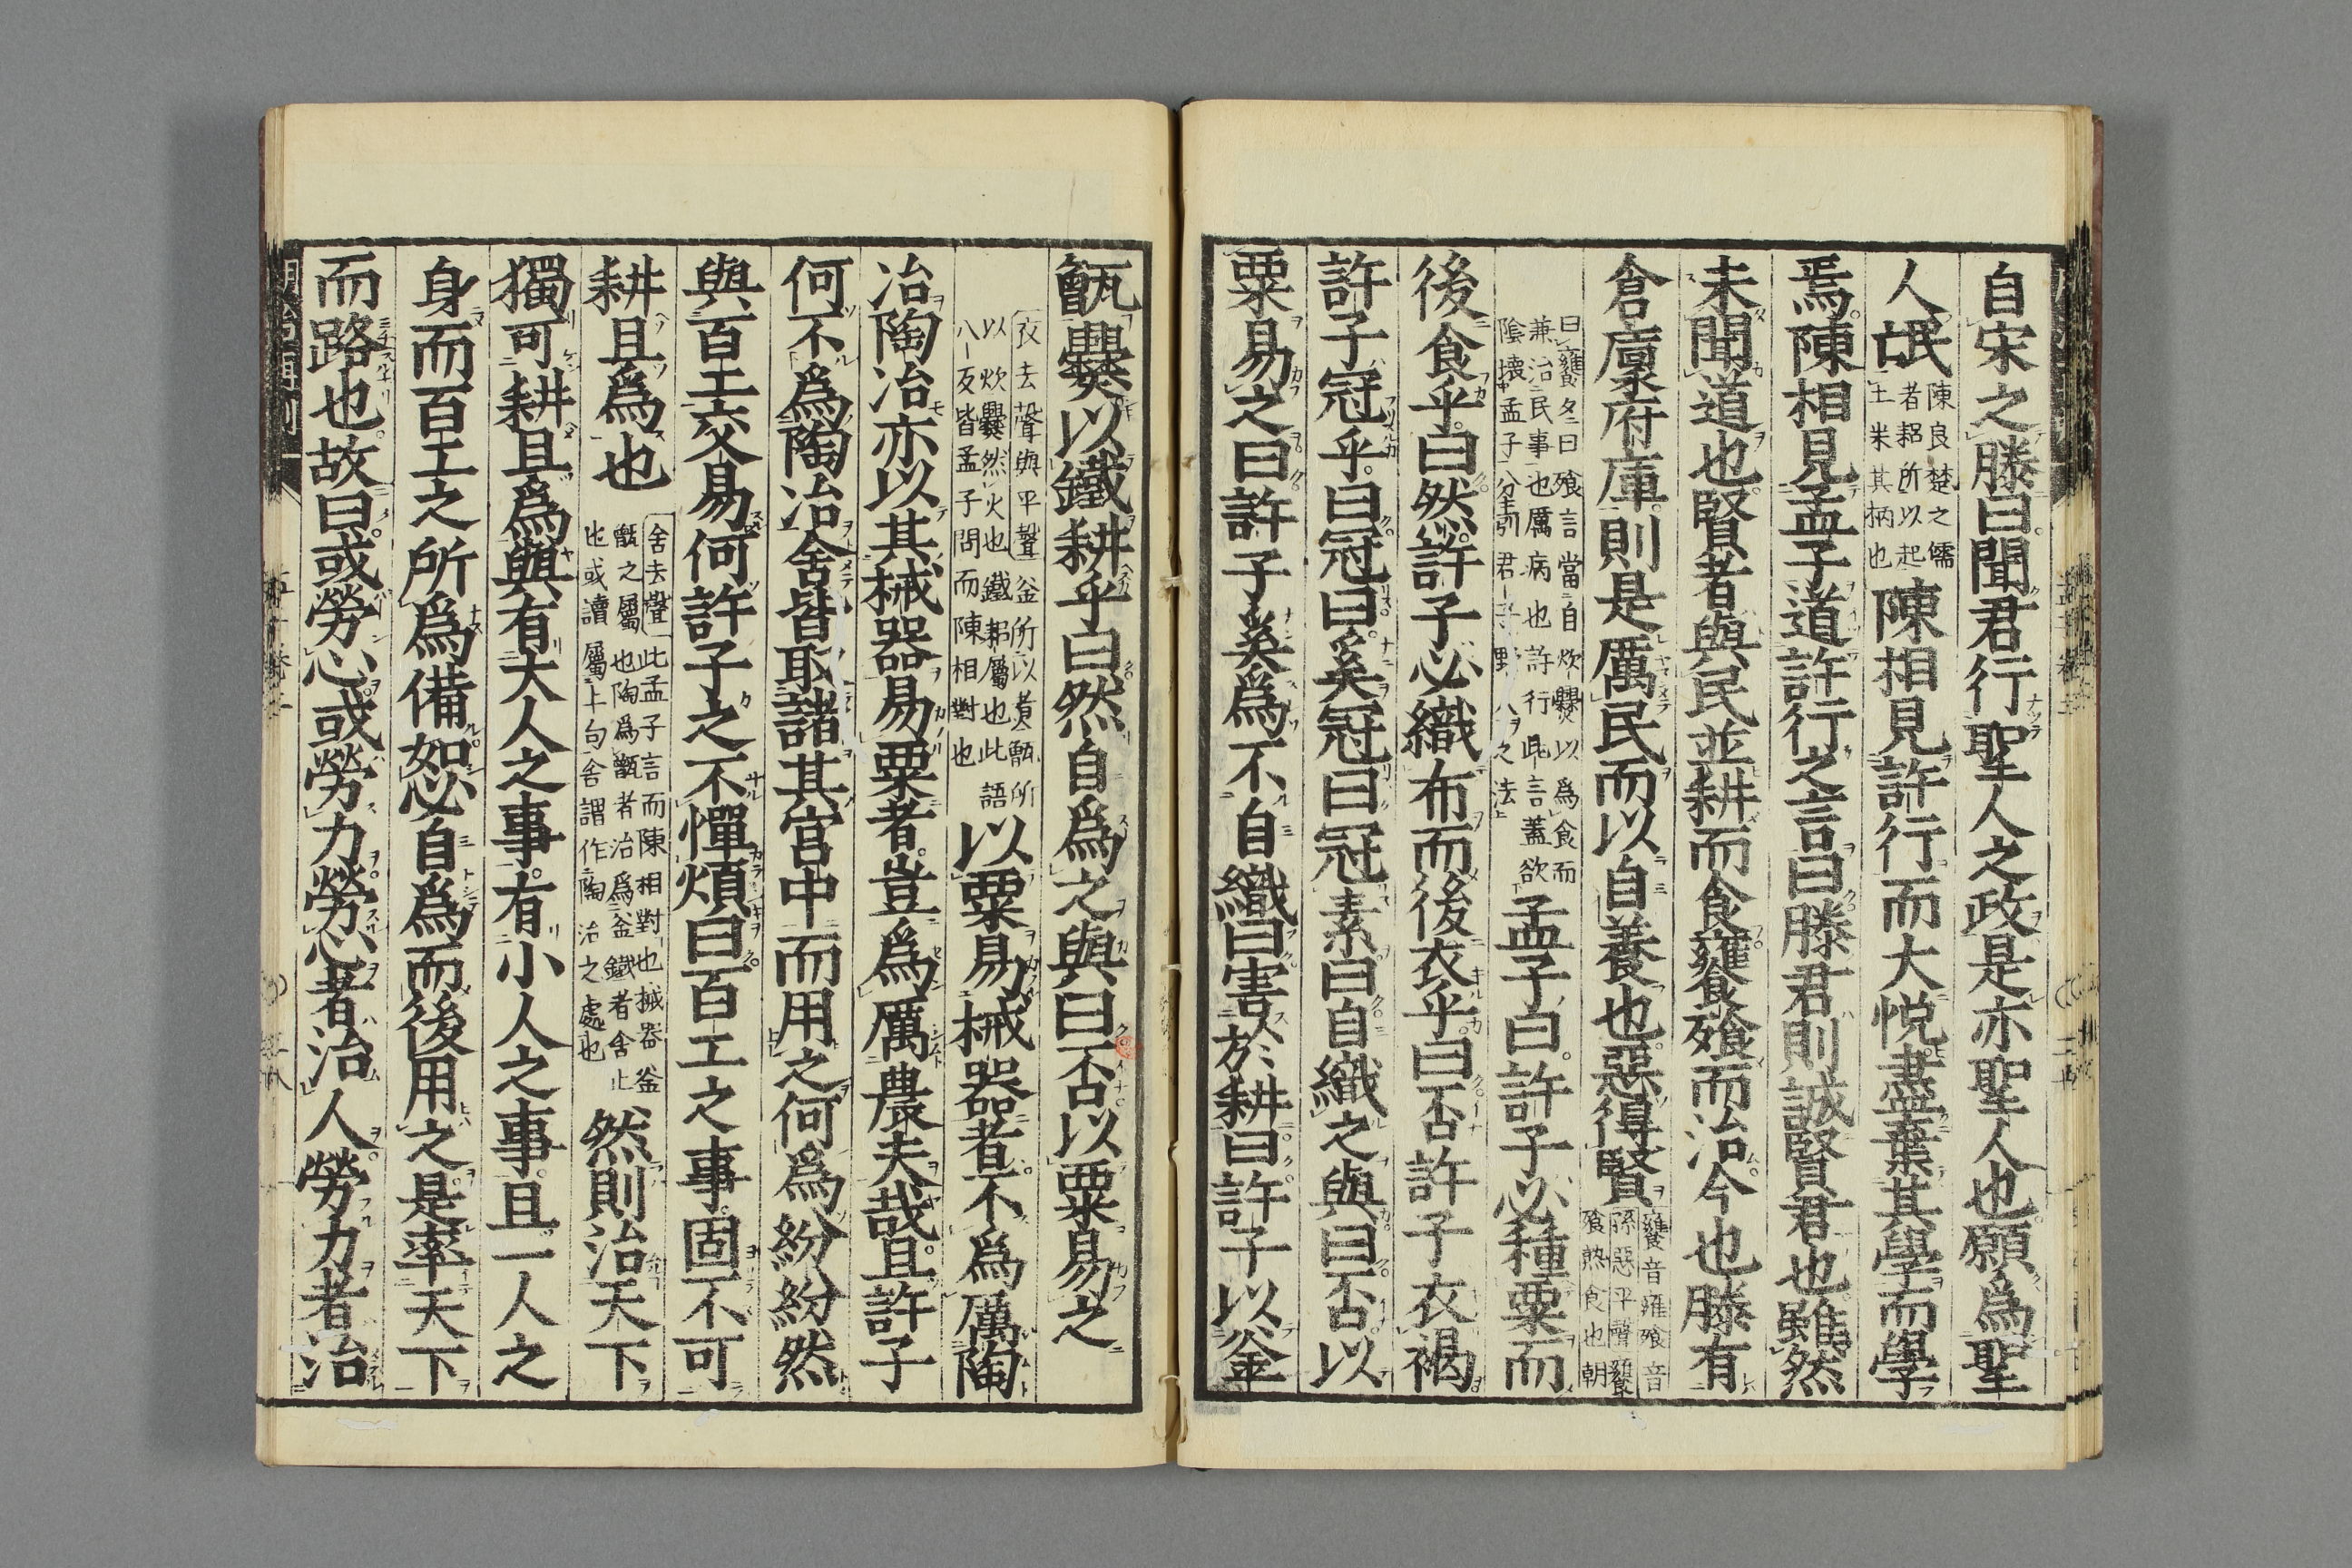 自宋之滕曰聞君行聖人之政是亦聖人也願爲聖
人氓陳良楚之儒者耜所以起土耒其柄也陳相見許行而大悅盡棄其學而學
焉陳相見孟子道許行之言曰滕君則誠賢君也雖然
未聞道也賢者與民並耕而食饔飧而治今也滕有
倉廩府庫則是厲民而以自養也惡得賢饔音雍飧音孫惡平聲饔飧熟食也朝
曰饔夕曰飧言當自炊爨以爲食而兼治民事也厲病也許行此言蓋欲陰壞孟子分別君子野人之法孟子曰許子必種粟而
後食乎曰然許子必織布而後衣乎曰否許子衣褐
許子冠乎曰冠曰奚冠曰冠素曰自織之與曰否以
粟易之曰許子奚爲不自織曰害於耕曰許子以釜
甑爨以鐵耕乎曰然自爲之與曰否以粟易之
衣去聲與平聲釜所以煑甑所以炊爨然火也鐵耜屬也此語八反皆孟子問而陳相對也以粟易械器者不爲厲陶
冶陶冶亦以其械器易粟者豈爲厲農夫哉且許子
何不爲陶冶舍皆取諸其宮中而用之何爲紛紛然
與百工交易何許子之不憚煩曰百工之事固不可
耕且爲也舍去聲此孟子言而陳相對也械器釜甑之屬也陶爲甑者冶爲釜鐵者舍止也或讀屬上句舍謂作陶冶之處也然則治天下
獨可耕且爲與有大人之事有小人之事且一人之
身而百工之所爲備如必自爲而後用之是率天下
而路也故曰或勞心或勞力勞心者治人勞力者治